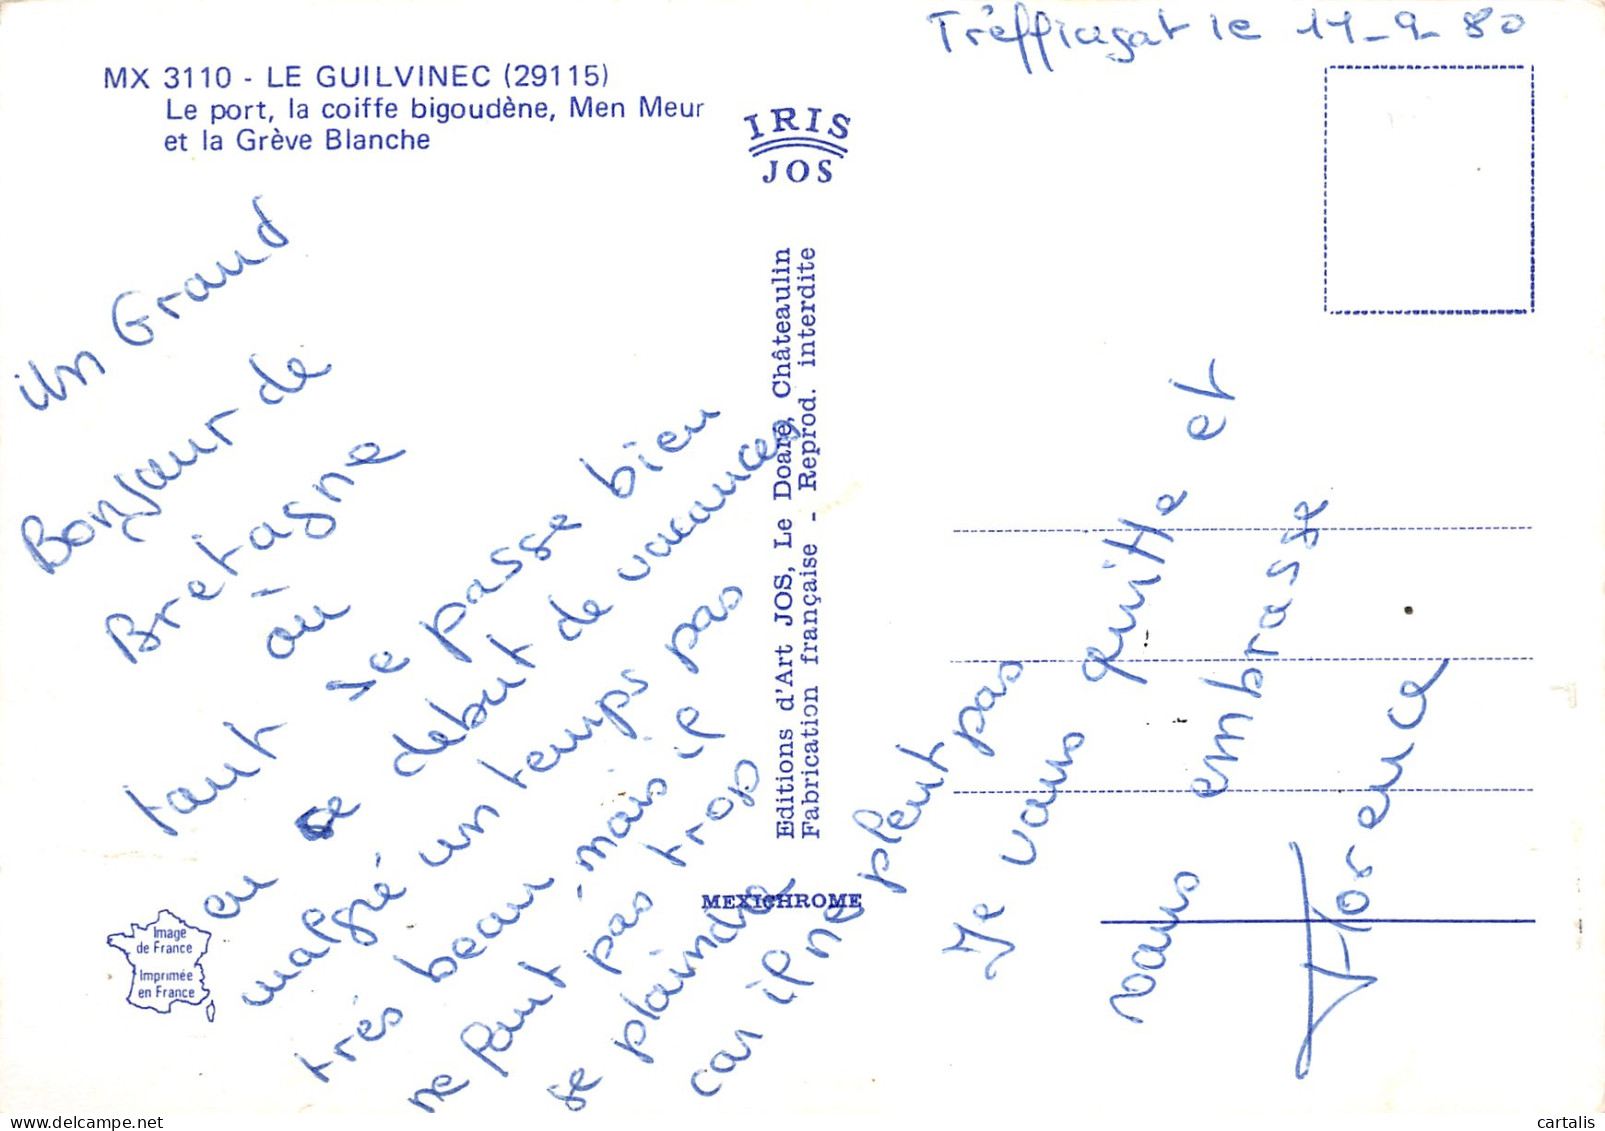 Tréffiagat le 14-9-80
MX 3110 - LE GUILVINEC (29115)
Le port, la coiffe bigoudène, Men Meur
et la Grève Blanche
IRIS
JOS
Un Grand
Bonjour de
Bretagne
où
tout se passe bien
en ce debut de vacances
malgré un temps pas
trés beau mais il
ne faut pas trop
se plaindre
car il ne pleut pas
Je vous quitte et
vous embrasse
Florence
Editions d'Art JOS, Le Doaré, Châteaulin
Fabrication française - Reprod. interdite
MEXICHROME
Image
de France
Imprimée
en France
cartalis